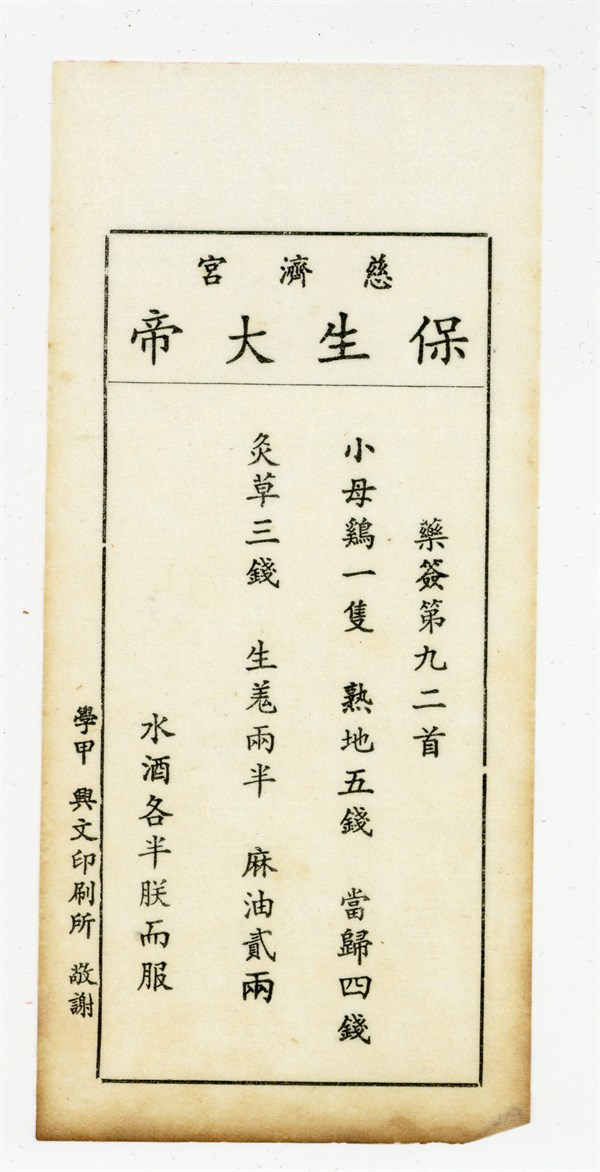 慈濟宮
保生大帝
藥簽第九二首
小母鷄一隻　熟地五錢　當歸四錢
灸草三錢　生羗兩半　麻油貳兩
水酒各半朕而服
學甲　興文印刷所　敬謝